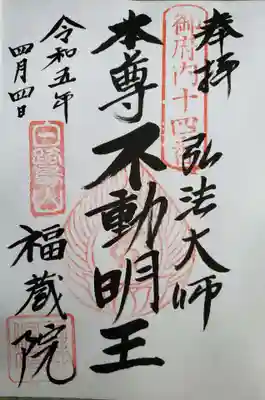 奉拝
御府内十四番
弘法大師
本尊不動明王
令和五年
四月四日
白鷺山
福蔵院